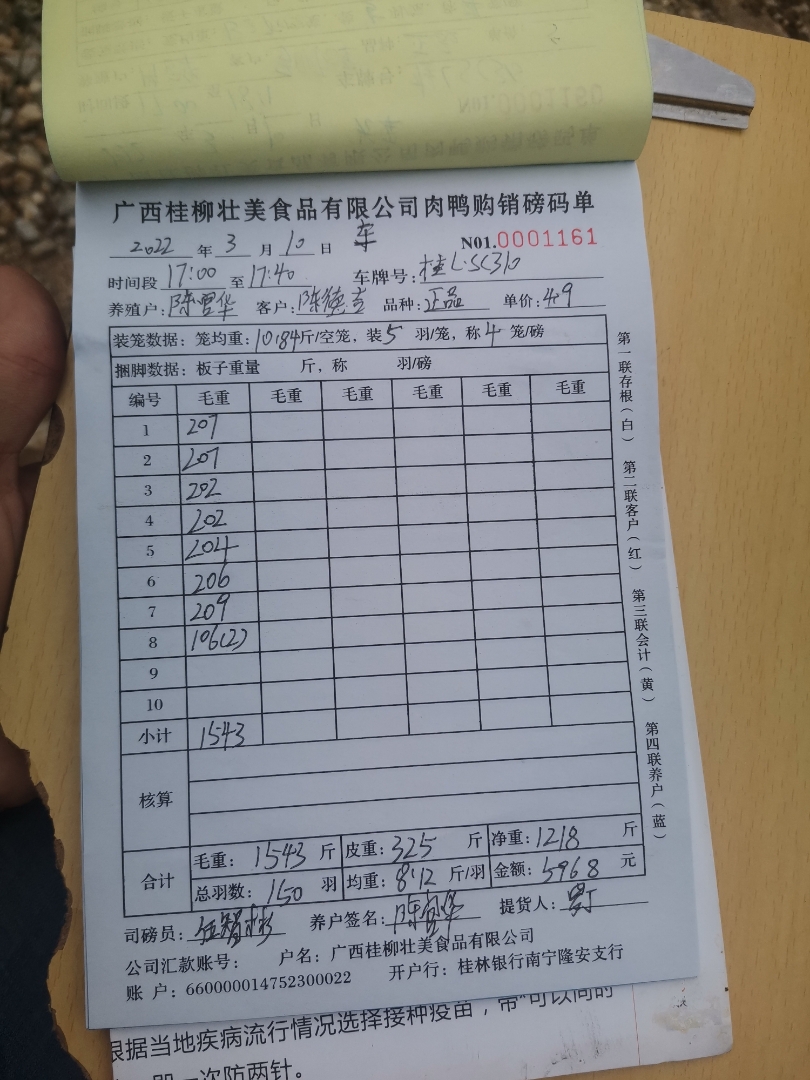 广西桂柳壮美食品有限公司肉鸭购销磅码单
2022年3月10日 车 N01.0001161
时间段 17:00 至 17:40 车牌号: 桂L·SC310
养殖户: 陈雪华 客户: 陈德立 品种: 正品 单价: 4.9
装笼数据: 笼均重: 10.84斤/空笼, 装5羽/笼, 称4笼/磅
捆脚数据: 板子重量 斤, 称 羽/磅
编号 毛重 毛重 毛重 毛重 毛重 毛重
1 207
2 207
3 202
4 202
5 204
6 206
7 209
8 106(2)
9
10
小计 1543
核算
合计 毛重: 1543 斤 皮重: 325 斤 净重: 1218 斤
总羽数: 150 羽 均重: 8.12 斤/羽 金额: 5968 元
司磅员: 养户签名: 陈雪华 提货人:
公司汇款账号: 户名: 广西桂柳壮美食品有限公司
账 户: 660000014752300022 开户行: 桂林银行南宁隆安支行
第一联存根(白) 第二联客户(红) 第三联会计(黄) 第四联养户(蓝)
根据当地疾病流行情况选择接种疫苗, 带"可以同时
一次防两针。